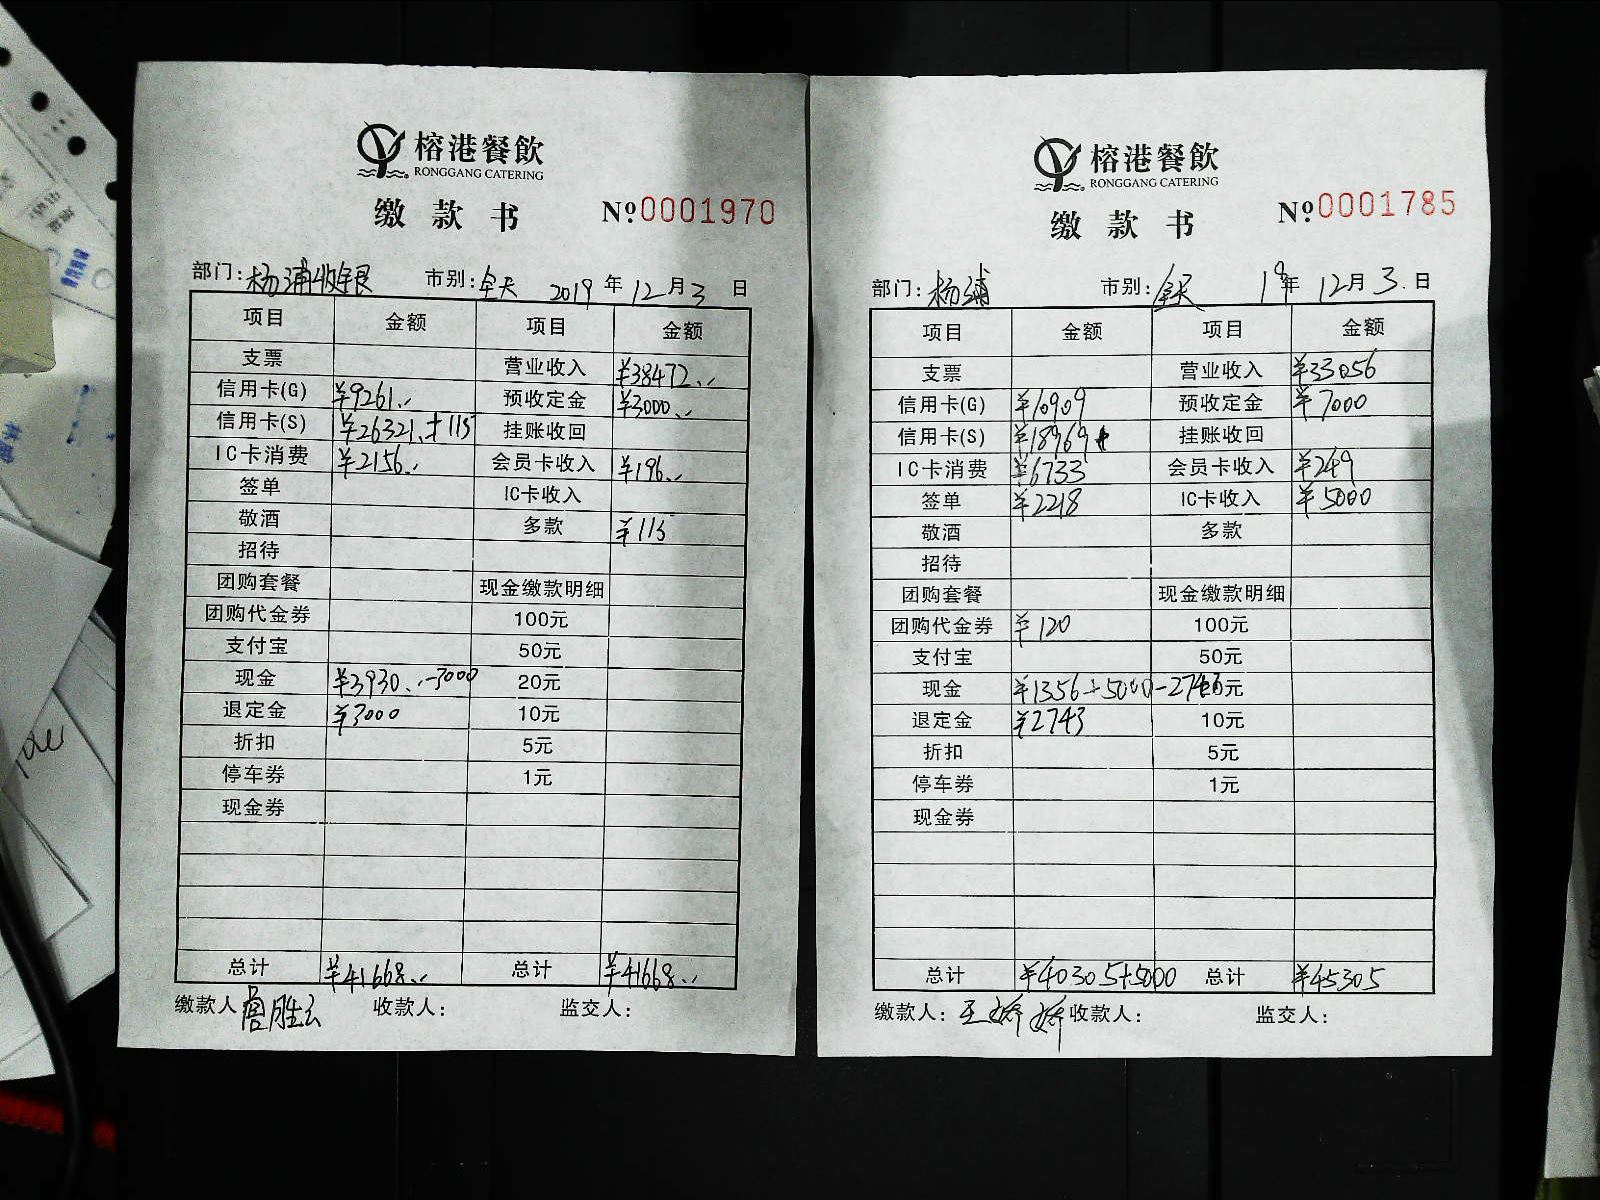 榕港餐飲
RONGGANG CATERING
缴款书 №0001970
部门:杨浦收银 市别:全天 2019年12月3日
项目 金额 项目 金额
支票 营业收入 ¥38472.
信用卡(G) ¥9261. 预收定金 ¥3000.
信用卡(S) ¥26321.+115 挂账收回
IC卡消费 ¥2156. 会员卡收入 ¥196.
签单 IC卡收入
敬酒 多款 ¥115
招待
团购套餐 现金缴款明细
团购代金券 100元
支付宝 50元
现金 ¥3930.-3000 20元
退定金 ¥3000 10元
折扣 5元
停车券 1元
现金券
总计 ¥41668. 总计 ¥41668.
缴款人: 收款人: 监交人:
榕港餐飲
RONGGANG CATERING
缴款书 №0001785
部门:杨浦 市别:全天 19年12月3日
项目 金额 项目 金额
支票 营业收入 ¥33056
信用卡(G) ¥10909 预收定金 ¥7000
信用卡(S) ¥18969 挂账收回
IC卡消费 ¥6733 会员卡收入 ¥249
签单 ¥2218 IC卡收入 ¥5000
敬酒 多款
招待
团购套餐 现金缴款明细
团购代金券 ¥120 100元
支付宝 50元
现金 ¥1356+5000-2743 元
退定金 ¥2743 10元
折扣 5元
停车券 1元
现金券
总计 ¥40305+5000 总计 ¥45305
缴款人:王娇娇 收款人: 监交人: